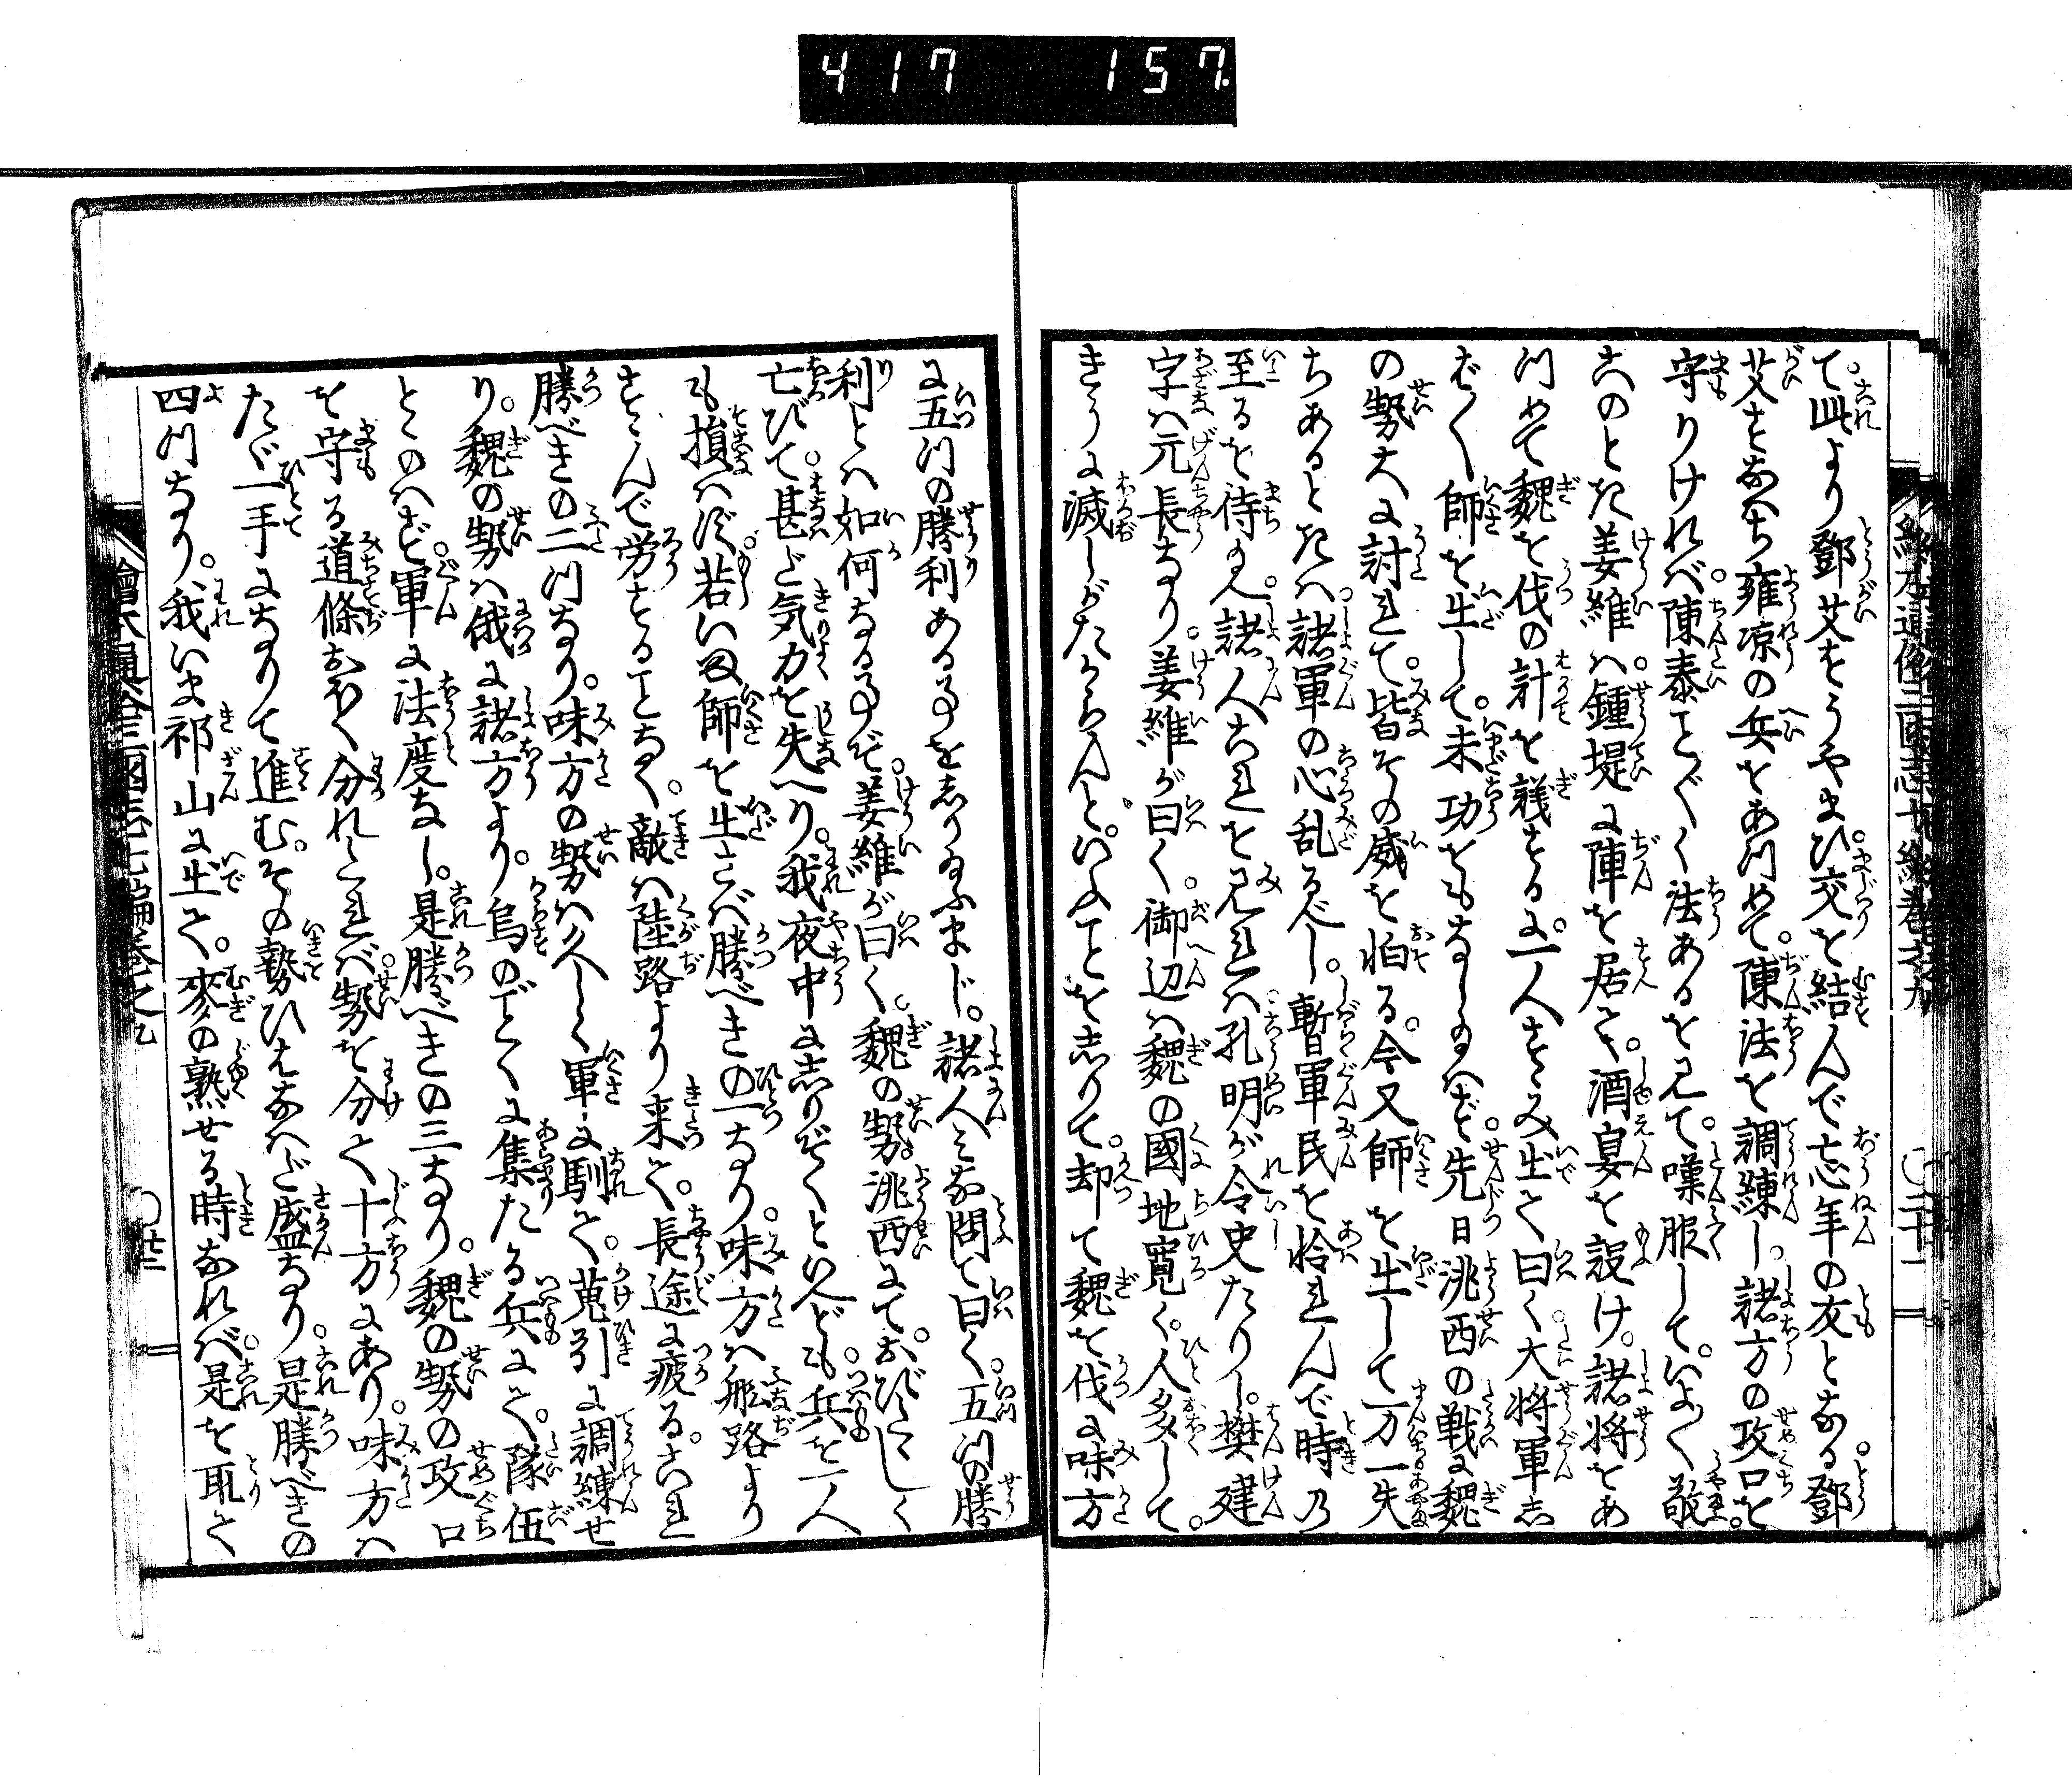 417 157
て。此より鄧艾をうやまひ。交を結んで忘年の友となる。鄧
艾すなハち雍凉の兵をあつめて。陳法を調練し。諸方の攻口を
守りけれバ。陳泰ことごとく法あるを見て。嘆服して。いよいよ敬
このとき姜維ハ。鍾堤に陣を居て。酒宴を設け。諸将をあ
つめて魏を伐の計を議するに。一人すゝみ出て曰く。大将軍し
ばしば師を出して。未功をもなし給ハず。先日洮西の戦に魏
の勢大に討れて。皆その威を怕る。今又師を出して万一失
ちあるときハ。諸軍の心乱るべし。暫軍民を拾れんで時乃
至るを待給へ。諸人これを見れバ。孔明が令史たりし。樊建
字ハ元長なり。姜維が曰く。御辺ハ魏の國地寛く。人多して。
きうに滅しがたからんと。いふことを志りて。却て魏を伐に味方
に五ツの勝利ある事をしり給ふまじ。諸人みな問て曰く。五ツの勝
利とハ如何なる事ぞ。姜維が曰く。魏の勢洮西にて。おびたゝしく
亡びて。甚ど気力を失へり。我夜中に志りぞくといへども。兵を一人
も損ハず。若いま師を出さバ勝べきの一なり。味方ハ舩路より
すゝんで労することなく。敵ハ陸路より来て。長途に疲る。これ
勝べきの二ツなり。味方の勢ハ久しく軍に馴て。蒐引に調練せ
り。魏の勢ハ俄に諸方より。烏のごとくに集たる兵にて。隊伍
とゝのハず。軍に法度なし。是勝べきの三なり。魏の勢の攻口
を守る道條おほく分れたれバ。勢を分て十方にあり。味方ハ
たゞ一手になりて進む。その勢ひはなハだ盛なり。是勝べきの
四ツなり。我いま祁山に出て。麥の熟せる時なれバ。是を取て